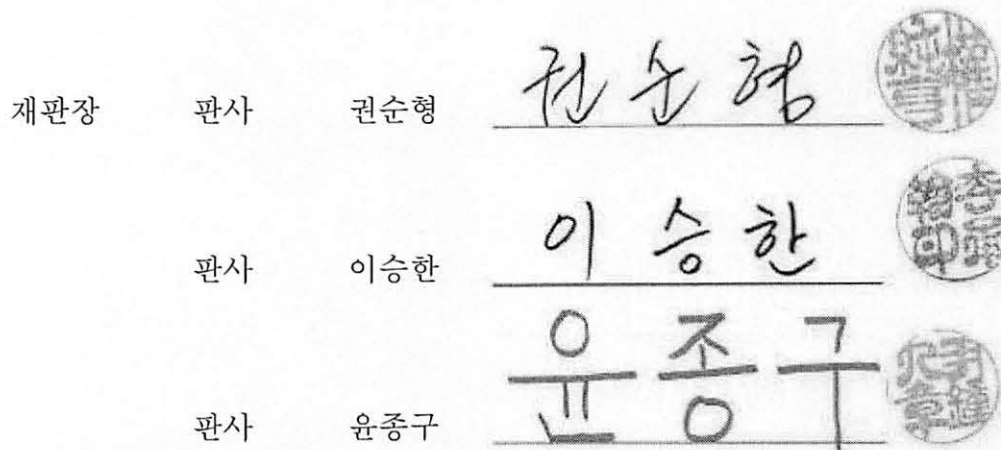 재판장 판사 권순형 권순형
판사 이승한 이승한
판사 윤종구 윤종구